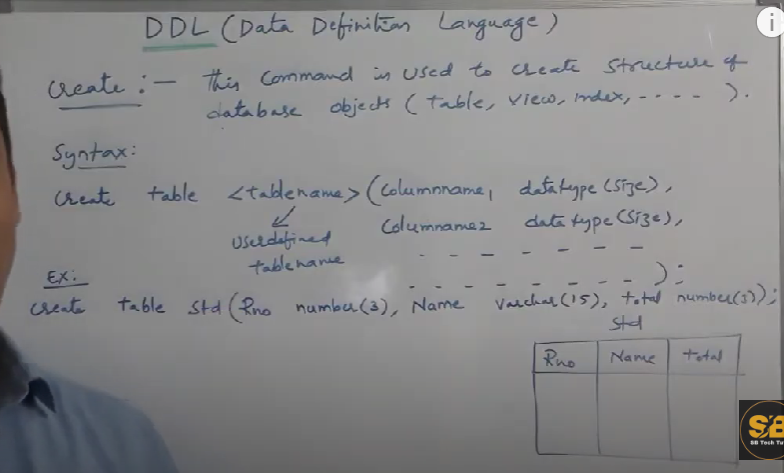 DDL (Data Definition Language)
Create :- This Command is used to create structure of
database objects (table, view, index, ----- ).
Syntax:
Create table <tablename> (Columnname1 datatype(size),
Columname2 datatype(size),
Userdefined
tablename
- - - - - - -
- - - - - - - - );
Ex:
Create table Std (Rno number(3), Name varchar(15), total number(3));
Std
Rno Name total
SB
SB Tech Tu
i